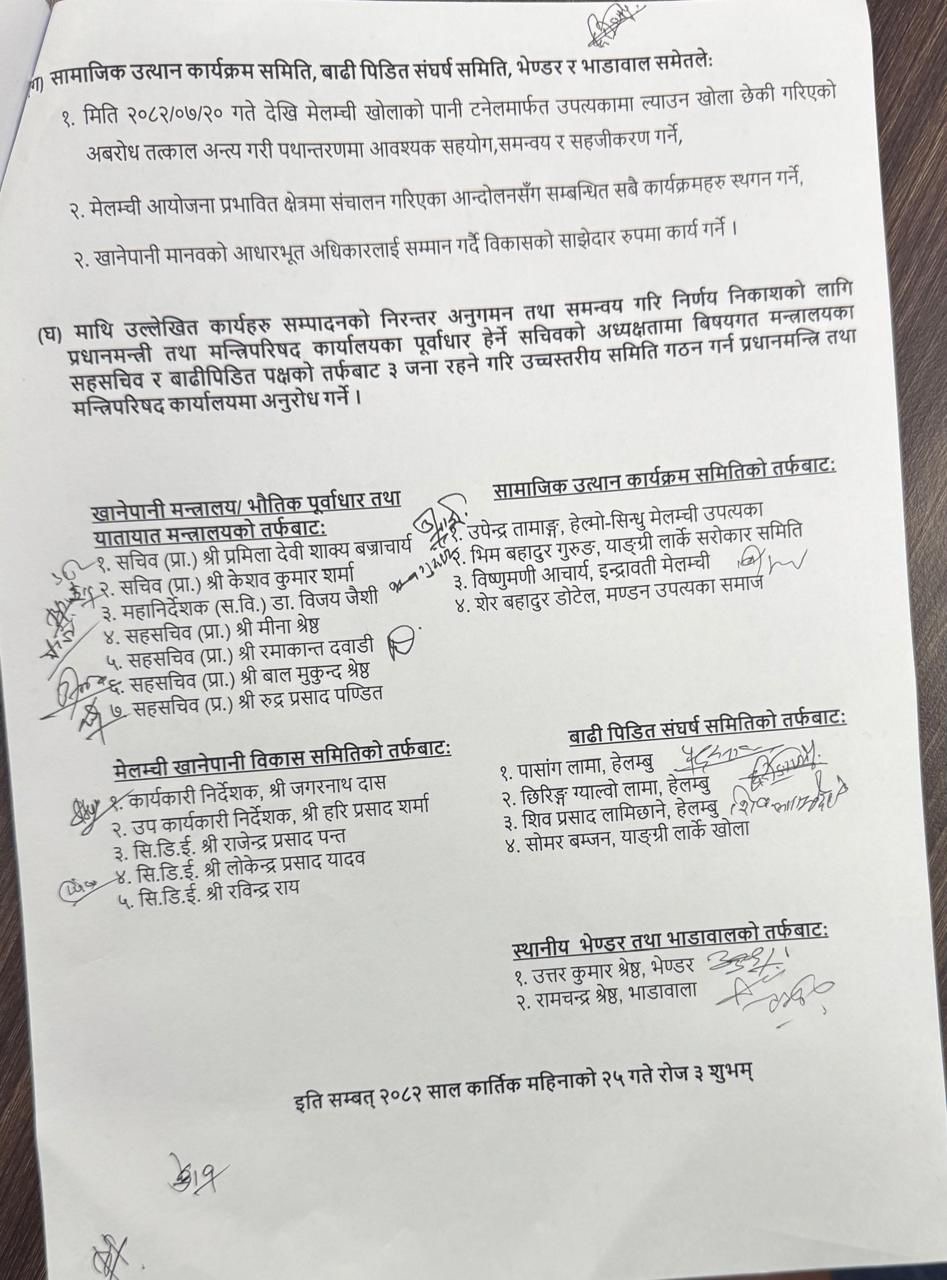 (ग) सामाजिक उत्थान कार्यक्रम समिति, बाढी पिडित संघर्ष समिति, भेण्डर र भाडावाल समेतले:
१. मिति २०८२/०७/२० गते देखि मेलम्ची खोलाको पानी टनेलमार्फत उपत्यकामा ल्याउन खोला छेकी गरिएको
अबरोध तत्काल अन्त्य गरी पथान्तरणमा आवश्यक सहयोग,समन्वय र सहजीकरण गर्ने,
२. मेलम्ची आयोजना प्रभावित क्षेत्रमा संचालन गरिएका आन्दोलनसँग सम्बन्धित सबै कार्यक्रमहरु स्थगन गर्ने,
२. खानेपानी मानवको आधारभूत अधिकारलाई सम्मान गर्दै विकासको साझेदार रुपमा कार्य गर्ने ।
(घ) माथि उल्लेखित कार्यहरु सम्पादनको निरन्तर अनुगमन तथा समन्वय गरि निर्णय निकाशको लागि
प्रधानमन्त्री तथा मन्त्रिपरिषद कार्यालयका पूर्वाधार हेर्ने सचिवको अध्यक्षतामा बिषयगत मन्त्रालयका
सहसचिव र बाढीपिडित पक्षको तर्फबाट ३ जना रहने गरि उच्चस्तरीय समिति गठन गर्न प्रधानमन्त्रि तथा
मन्त्रिपरिषद कार्यालयमा अनुरोध गर्ने ।
खानेपानी मन्त्रालय/ भौतिक पूर्वाधार तथा
यातायात मन्त्रालयको तर्फबाट:
१. सचिव (प्रा.) श्री प्रमिला देवी शाक्य बज्राचार्य
२. सचिव (प्रा.) श्री केशव कुमार शर्मा
३. महानिर्देशक (स.वि.) डा. विजय जैशी
४. सहसचिव (प्रा.) श्री मीना श्रेष्ठ
५. सहसचिव (प्रा.) श्री रमाकान्त दवाडी
६. सहसचिव (प्रा.) श्री बाल मुकुन्द श्रेष्ठ
७. सहसचिव (प्र.) श्री रुद्र प्रसाद पण्डित
सामाजिक उत्थान कार्यक्रम समितिको तर्फबाट:
१. उपेन्द्र तामाङ्ग, हेल्मो-सिन्धु मेलम्ची उपत्यका
२. भिम बहादुर गुरुङ, याङ्ग्री लार्के सरोकार समिति
३. विष्णुमणी आचार्य, इन्द्रावती मेलम्ची
४. शेर बहादुर डोटेल, मण्डन उपत्यका समाज
मेलम्ची खानेपानी विकास समितिको तर्फबाट:
१. कार्यकारी निर्देशक, श्री जगरनाथ दास
२. उप कार्यकारी निर्देशक, श्री हरि प्रसाद शर्मा
३. सि.डि.ई. श्री राजेन्द्र प्रसाद पन्त
४. सि.डि.ई. श्री लोकेन्द्र प्रसाद यादव
५. सि.डि.ई. श्री रविन्द्र राय
बाढी पिडित संघर्ष समितिको तर्फबाट:
१. पासांग लामा, हेलम्बु
२. छिरिङ्ग ग्याल्वो लामा, हेलम्बु
३. शिव प्रसाद लामिछाने, हेलम्बु
४. सोमर बम्जन, याङ्ग्री लार्के खोला
स्थानीय भेण्डर तथा भाडावालको तर्फबाट:
१. उत्तर कुमार श्रेष्ठ, भेण्डर
२. रामचन्द्र श्रेष्ठ, भाडावाला
इति सम्बत् २०८२ साल कार्तिक महिनाको २५ गते रोज ३ शुभम्